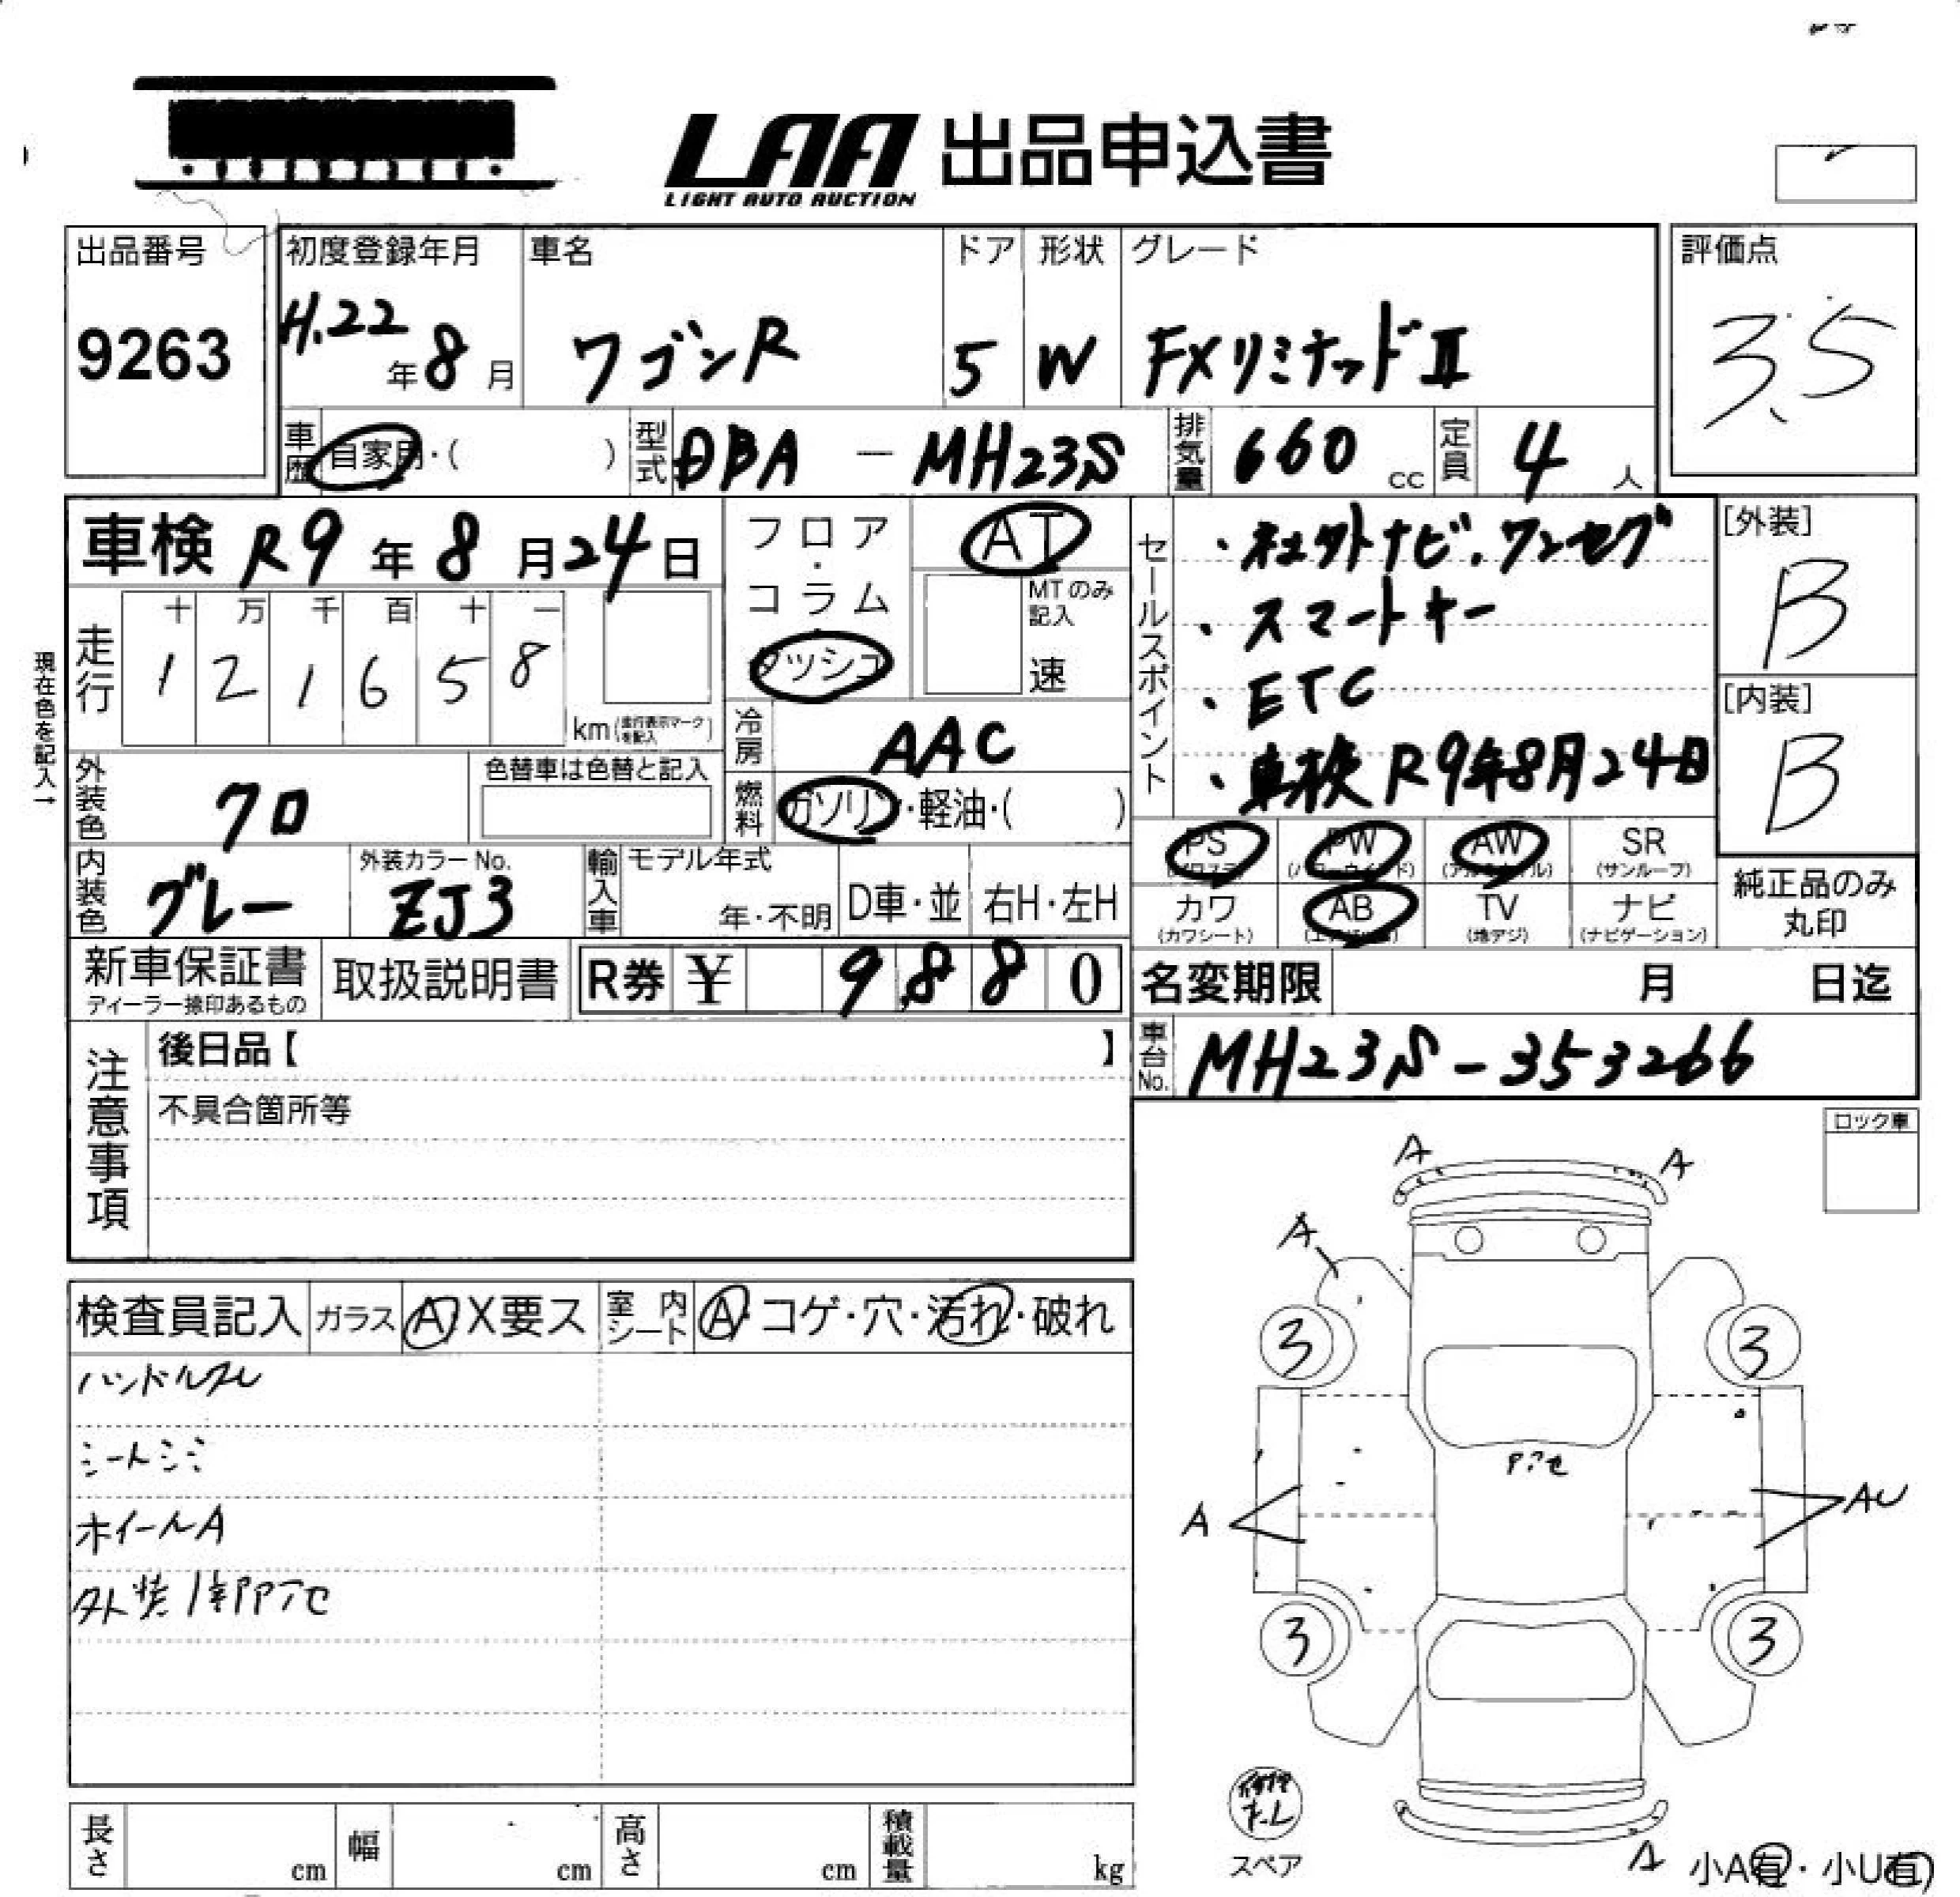 LAA 出品申込書
LIGHT AUTO AUCTION
出品番号
9263
初度登録年月
H.22年8月
車名
ワゴンR
ドア
5
形状
W
グレード
FXリミテッドⅡ
評価点
3.5
車歴 自家用・( )
型式 DBA — MH23S
排気量 660 cc
定員 4 人
車検 R9年8月24日
現在色を記入→
走行
十 万 千 百 十 一
1 2 1 6 5 8
km(走行表示マークを記入)
フロア・コラム・ダッシュ
AT
MTのみ記入
速
冷房 AAC
燃料 ガソリン・軽油・( )
外装色 クロ
色替車は色替と記入
内装色 グレー
外装カラーNo.
ZJ3
輸入車
モデル年式
年・不明
D車・並
右H・左H
セールスポイント
・社外ナビ.ワンセグ
・スマートキー
・ETC
・車検R9年8月24日
[外装]
B
[内装]
B
PS
(パワステ)
PW
(パワーウインド)
AW
(アルミホイル)
SR
(サンルーフ)
カワ
(カワシート)
AB
(エアバッグ)
TV
(地デジ)
ナビ
(ナビゲーション)
純正品のみ
丸印
新車保証書
ディーラー捺印あるもの
取扱説明書
R券 ¥ 9,880
名変期限 月 日迄
車台No. MH23S-353266
注意事項
後日品【 】
不具合箇所等
ロック車
検査員記入
ガラス A X要ス
室内シート A・コゲ・穴・汚れ・破れ
ハンドルスレ
シートシミ
ホイールA
外装1部Pアセ
A
A
A
3
3
Pアセ
A
AU
3
3
スペア
A
小A有・小U有
長さ cm
幅 cm
高さ cm
積載量 kg